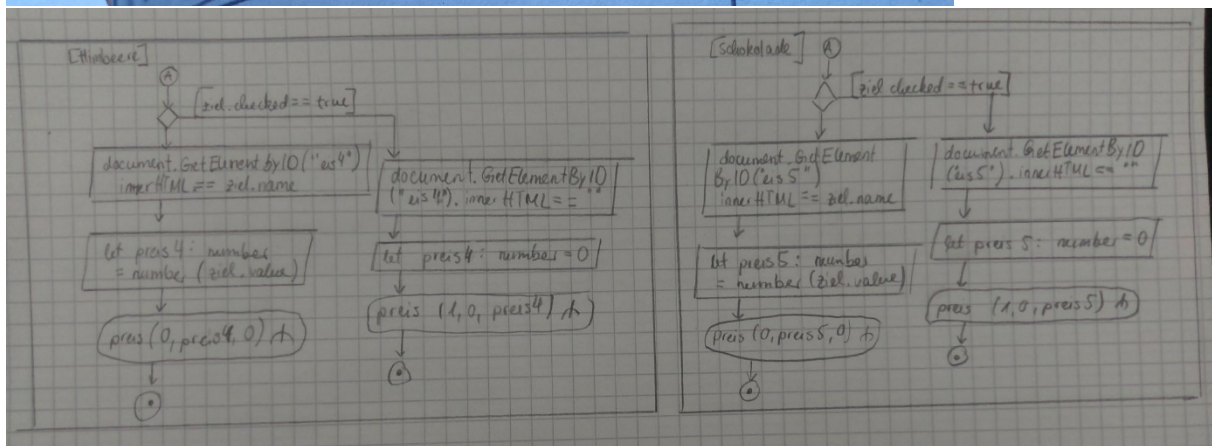 [Himbeere]
A
[ziel.checked == true]
document.GetElement by ID ("eis4")
innerHTML == ziel.name
let preis 4 : number
= number (ziel.value)
preis (0, preis4, 0)
document.GetElementByID
("eis4"). innerHTML == ""
let preis4 : number = 0
preis (1, 0, preis4)
[Schokolade]
A
[ziel checked == true]
document.GetElement
By ID ("eis 5")
innerHTML == ziel.name
let preis5 : number
= number (ziel.value)
preis (0, preis5, 0)
document.GetElementByID
("eis5"). innerHTML == ""
let preis 5 : number = 0
preis (1, 0, preis5)